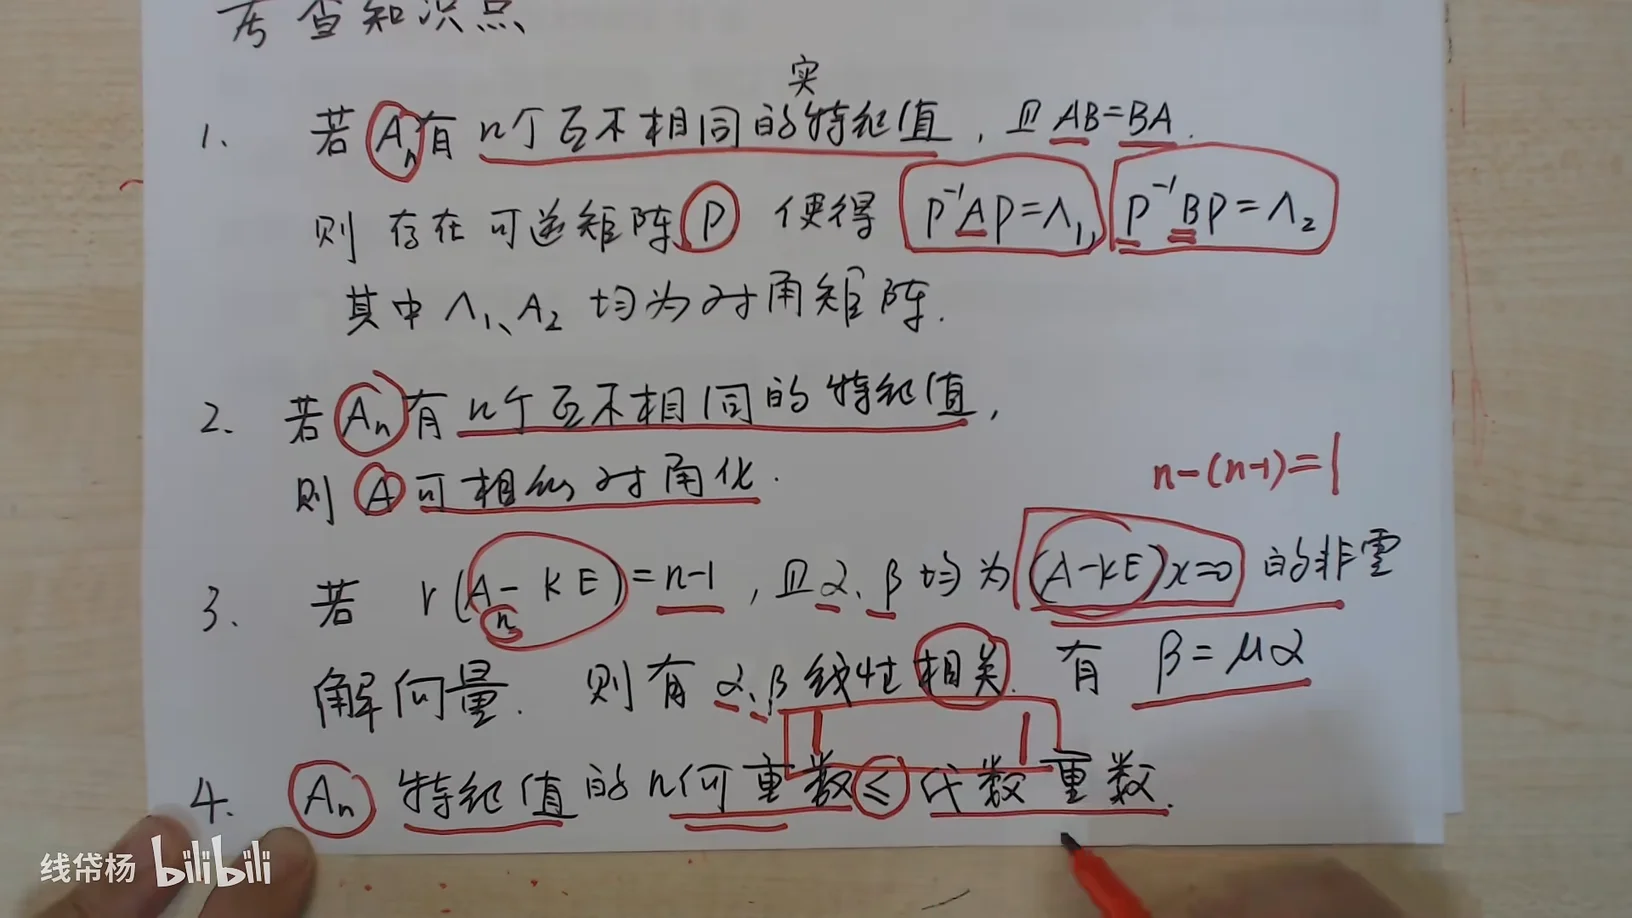 考查知识点
实
1. 若An有n个互不相同的特征值, 且AB=BA.
则存在可逆矩阵P 使得 P⁻¹AP=Λ₁, P⁻¹BP=Λ₂
其中Λ₁、Λ₂ 均为对角矩阵.
2. 若An有n个互不相同的特征值,
则A可相似对角化.
n-(n-1)=1
3. 若 r(A-kE)=n-1, 且α、β均为(A-kE)x=0的非零
n
解向量. 则有α、β线性相关. 有 β=μα
1 1
4. An 特征值的几何重数≤代数重数.
线帒杨 bilibili